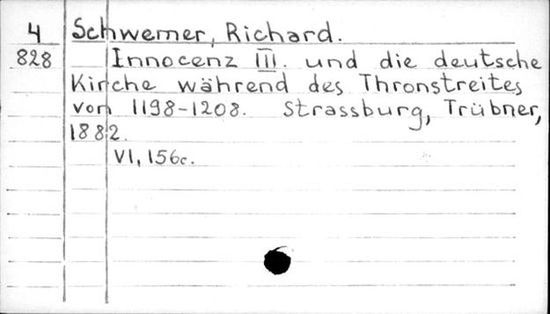 4 Schwemer, Richard.
828 Innocenz III. und die deutsche
Kirche während des Thronstreites
von 1198-1208. Strassburg, Trübner,
1882.
VI, 156c.